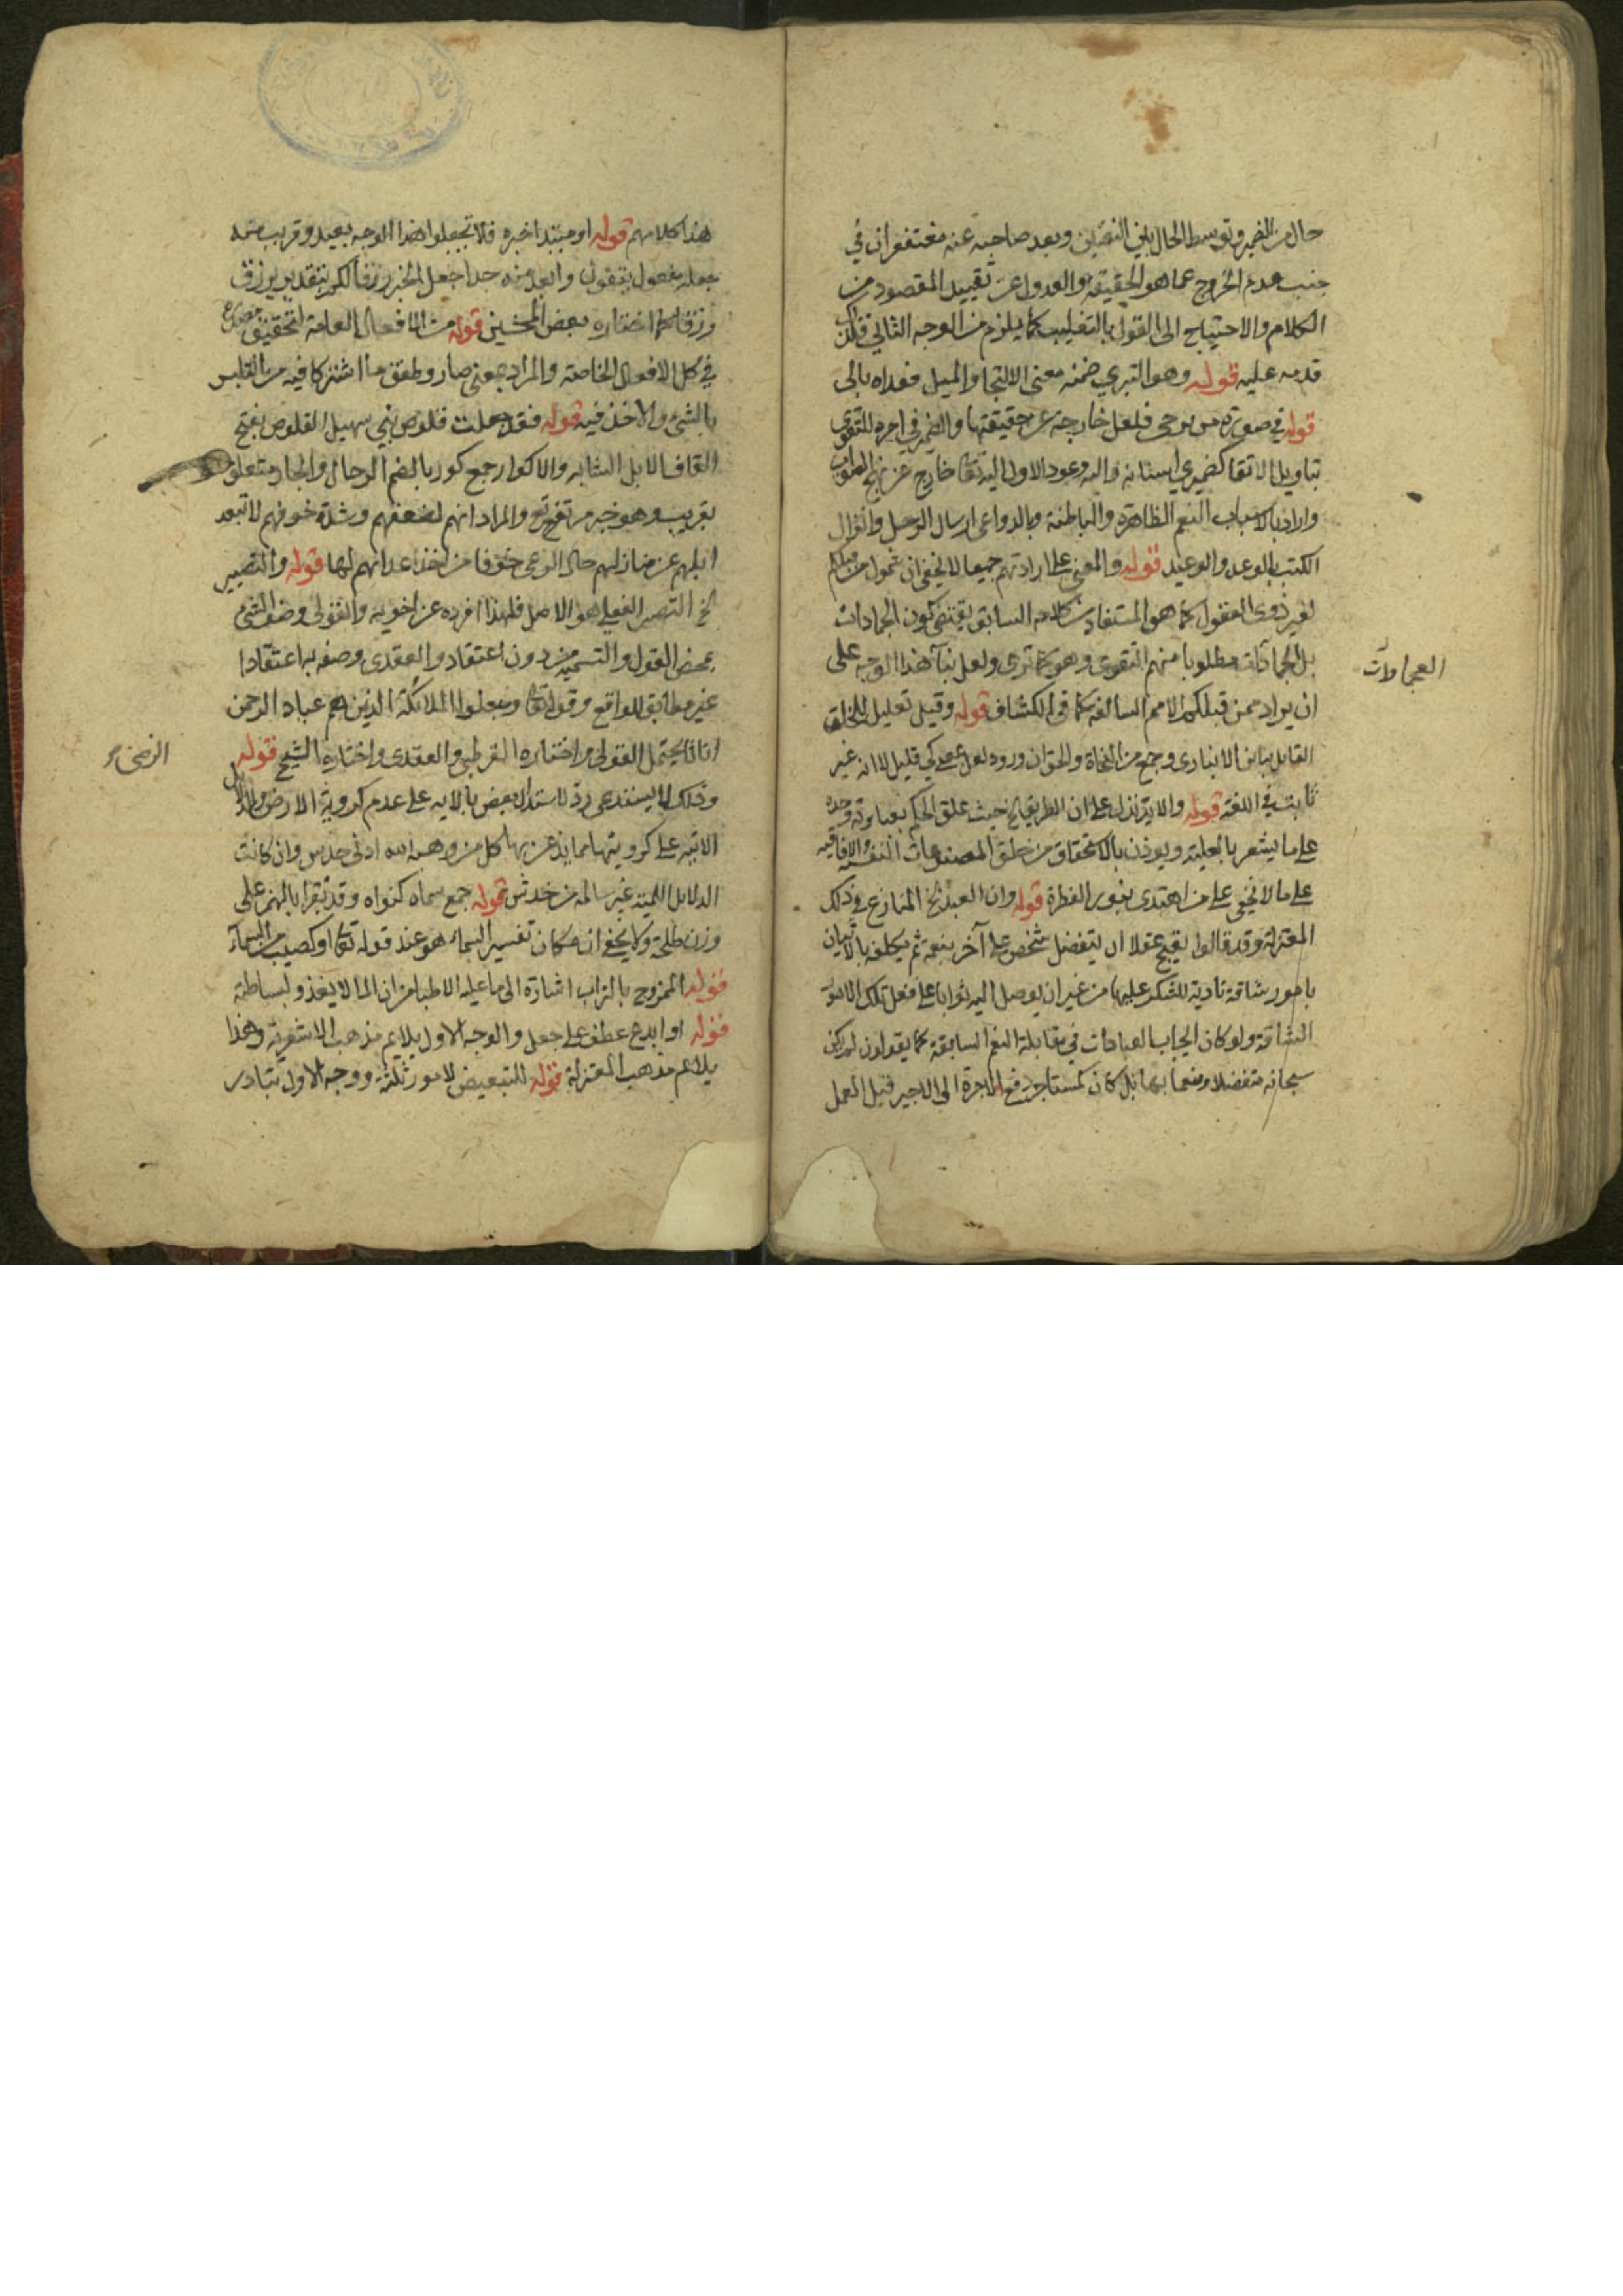 حال من الضمير وتوسط الحال بين النقيضين وبعد صاحبه عنه مغتفران في
جنب عدم الخروج عما هو الحقيقة والعدول عن تقييد المقصود من
الكلام والاحتياج الى القول بالتغليب كما يلزم من الوجه الثاني فلذا
قدمه عليه قوله وهو التبري ضمنه معنى الالتجا والميل فعداه بالى
قوله في صورة من يرجى فلعل خارجة عن حقيقتها والضمير في اجره للتقوى
بتاويل الاتقا كضميري اسنانه واليه وعود الاول اليه تعالى خارج عن نهج
واراد بالاسباب النعم الظاهرة والباطنة وبالدواعي ارسال الرسل وانزال
الكتب بالوعد والوعيد قوله والمعنى على ارادتهم جميعا لا يخفى ان شمول من قبلكم
لغير ذوى العقول كما هو المستفاد من كلامه السابق يقتضى كون الجمادات
بل الجمادات مطلوبا منهم التقوى وهو كما ترى ولعل بناء هذا الوجه على
العجماوات
ان يراد بمن قبلكم الامم السالفة كما في الكشاف قوله وقيل تعليل للخلق
القايل به ابن الانبارى وجمع من النحاة والحق ان ورود لعل بمعنى كي قليل لا انه غير
ثابت في اللغة قوله والاية تدل على ان الطريق الخ حيث علق الحكم بعبادته وحده
على ما يشعر بالعلية ويوذن بالاستحقاق من خلق المصنوعات النفسية والافاقية
على ما لا يخفى على من اهتدى بنور الفطرة قوله وان العبد الخ المنازع في ذلك
المعتزلة وقد قالوا يقبح عقلا ان يتفضل شخص على آخر بنعمة ثم يكلفه بالاتيان
بامور شاقة تادية للشكر عليها من غير ان يوصل اليه ثوابا على فعل تلك الامور
الشاقة ولو كان ايجاب العبادات في مقابلة النعم السابقة كما يقولون لم يكن
سبحانه متفضلا ومنعما بها بل كان كمستاجر دفع الاجرة الى الاجير قبل العمل
هذا كلامهم قوله او مبتدا خبره فلا تجعلوا هذا الوجه بعيد وقريب منه
جعله مفعول يتقون وابعد منه جدا جعل الخبر رزقا لكم بتقدير يرزق
ورزقا كما اختاره بعض المحشين قوله من الافعال العامة لتحقيق
في كل الافعال الخاصة والمراد بمعنى صار وطفق ما اشتركا فيه من التلبس
بالشئ والاخذ فيه قوله فقد جعلت قلوص بني سهيل القلوص بفتح
القاف الابل الشابه والاكوار جمع كور بالضم الرحال والجار متعلق
بقريب وهو خبر مرتفع والمراد انهم لضعفهم وشدة خوفهم لا تبعد
ابلهم عن منازلهم حال الرعي خوفا من اخذ اعدائهم لها قوله والتصيير
الخ التصيير الفعلي هو الاصل فلهذا افرده عن اخويه والقولى وصف الشئ
بمحض القول والتسمية من دون اعتقاد والعقدى وصفه به اعتقادا
غير مطابق للواقع وقوله تعالى وجعلوا الملائكة الذين هم عباد الرحمن
اناثا يحتمل القولى واختاره القرطبى والعقدى واختاره الشيخ قوله
وذلك لا يستدعى رد لاستدلال بعض بالايه على عدم كروية الارض
الاتيه على كرويتها مما يذعن بها كل من وهبه الله ادنى حدس وان كانت
الدلايل اللمية غير سالمة من خدش قوله جمع سماه كنواه وقد تقرا بالهمز على
وزن طلحة ولا يخفى ان مكان تفسير السماء هو عند قوله تعالى او كصيب من السماء
قوله الممزوج بالتراب اشارة الى ما عليه الاطبا من ان الما لا يغذو لبساطته
قوله او ابدع عطف على جعل والوجه الاول يلايم مذهب الاشعرية وهذا
يلايم مذهب المعتزلة قوله للتبعيض لامور ثلثة ووجه الاول بتبادر